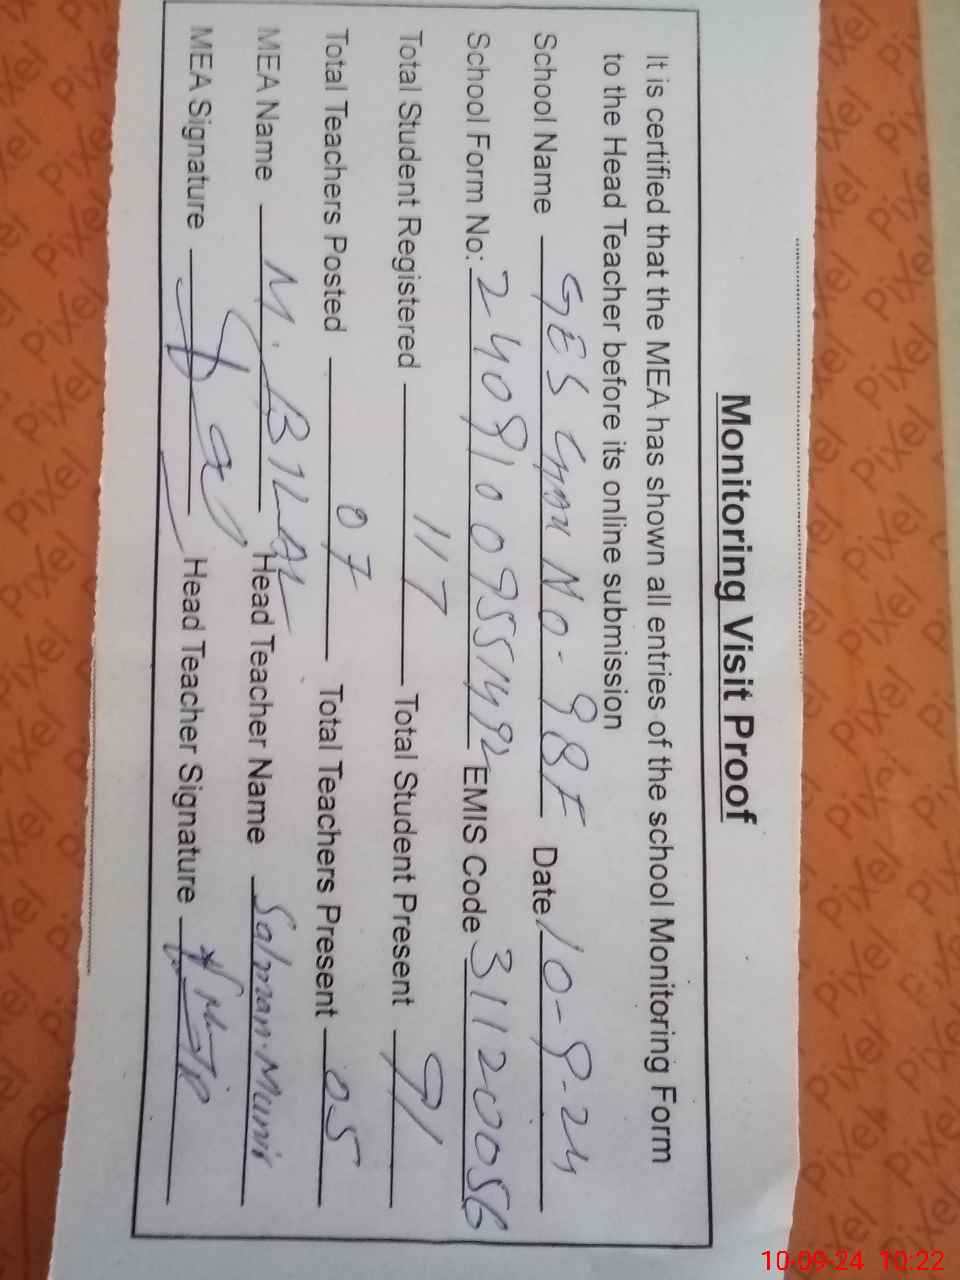 Monitoring Visit Proof
It is certified that the MEA has shown all entries of the school Monitoring Form
to the Head Teacher before its online submission
School Name GES Chak No - 98F Date 10-9-24
School Form No: 24091009551492 EMIS Code 31120056
Total Student Registered 117 Total Student Present 91
Total Teachers Posted 07 Total Teachers Present 05
MEA Name M. BILAL Head Teacher Name Salman Munir
MEA Signature Head Teacher Signature
PiXel
10-09-24 10:22